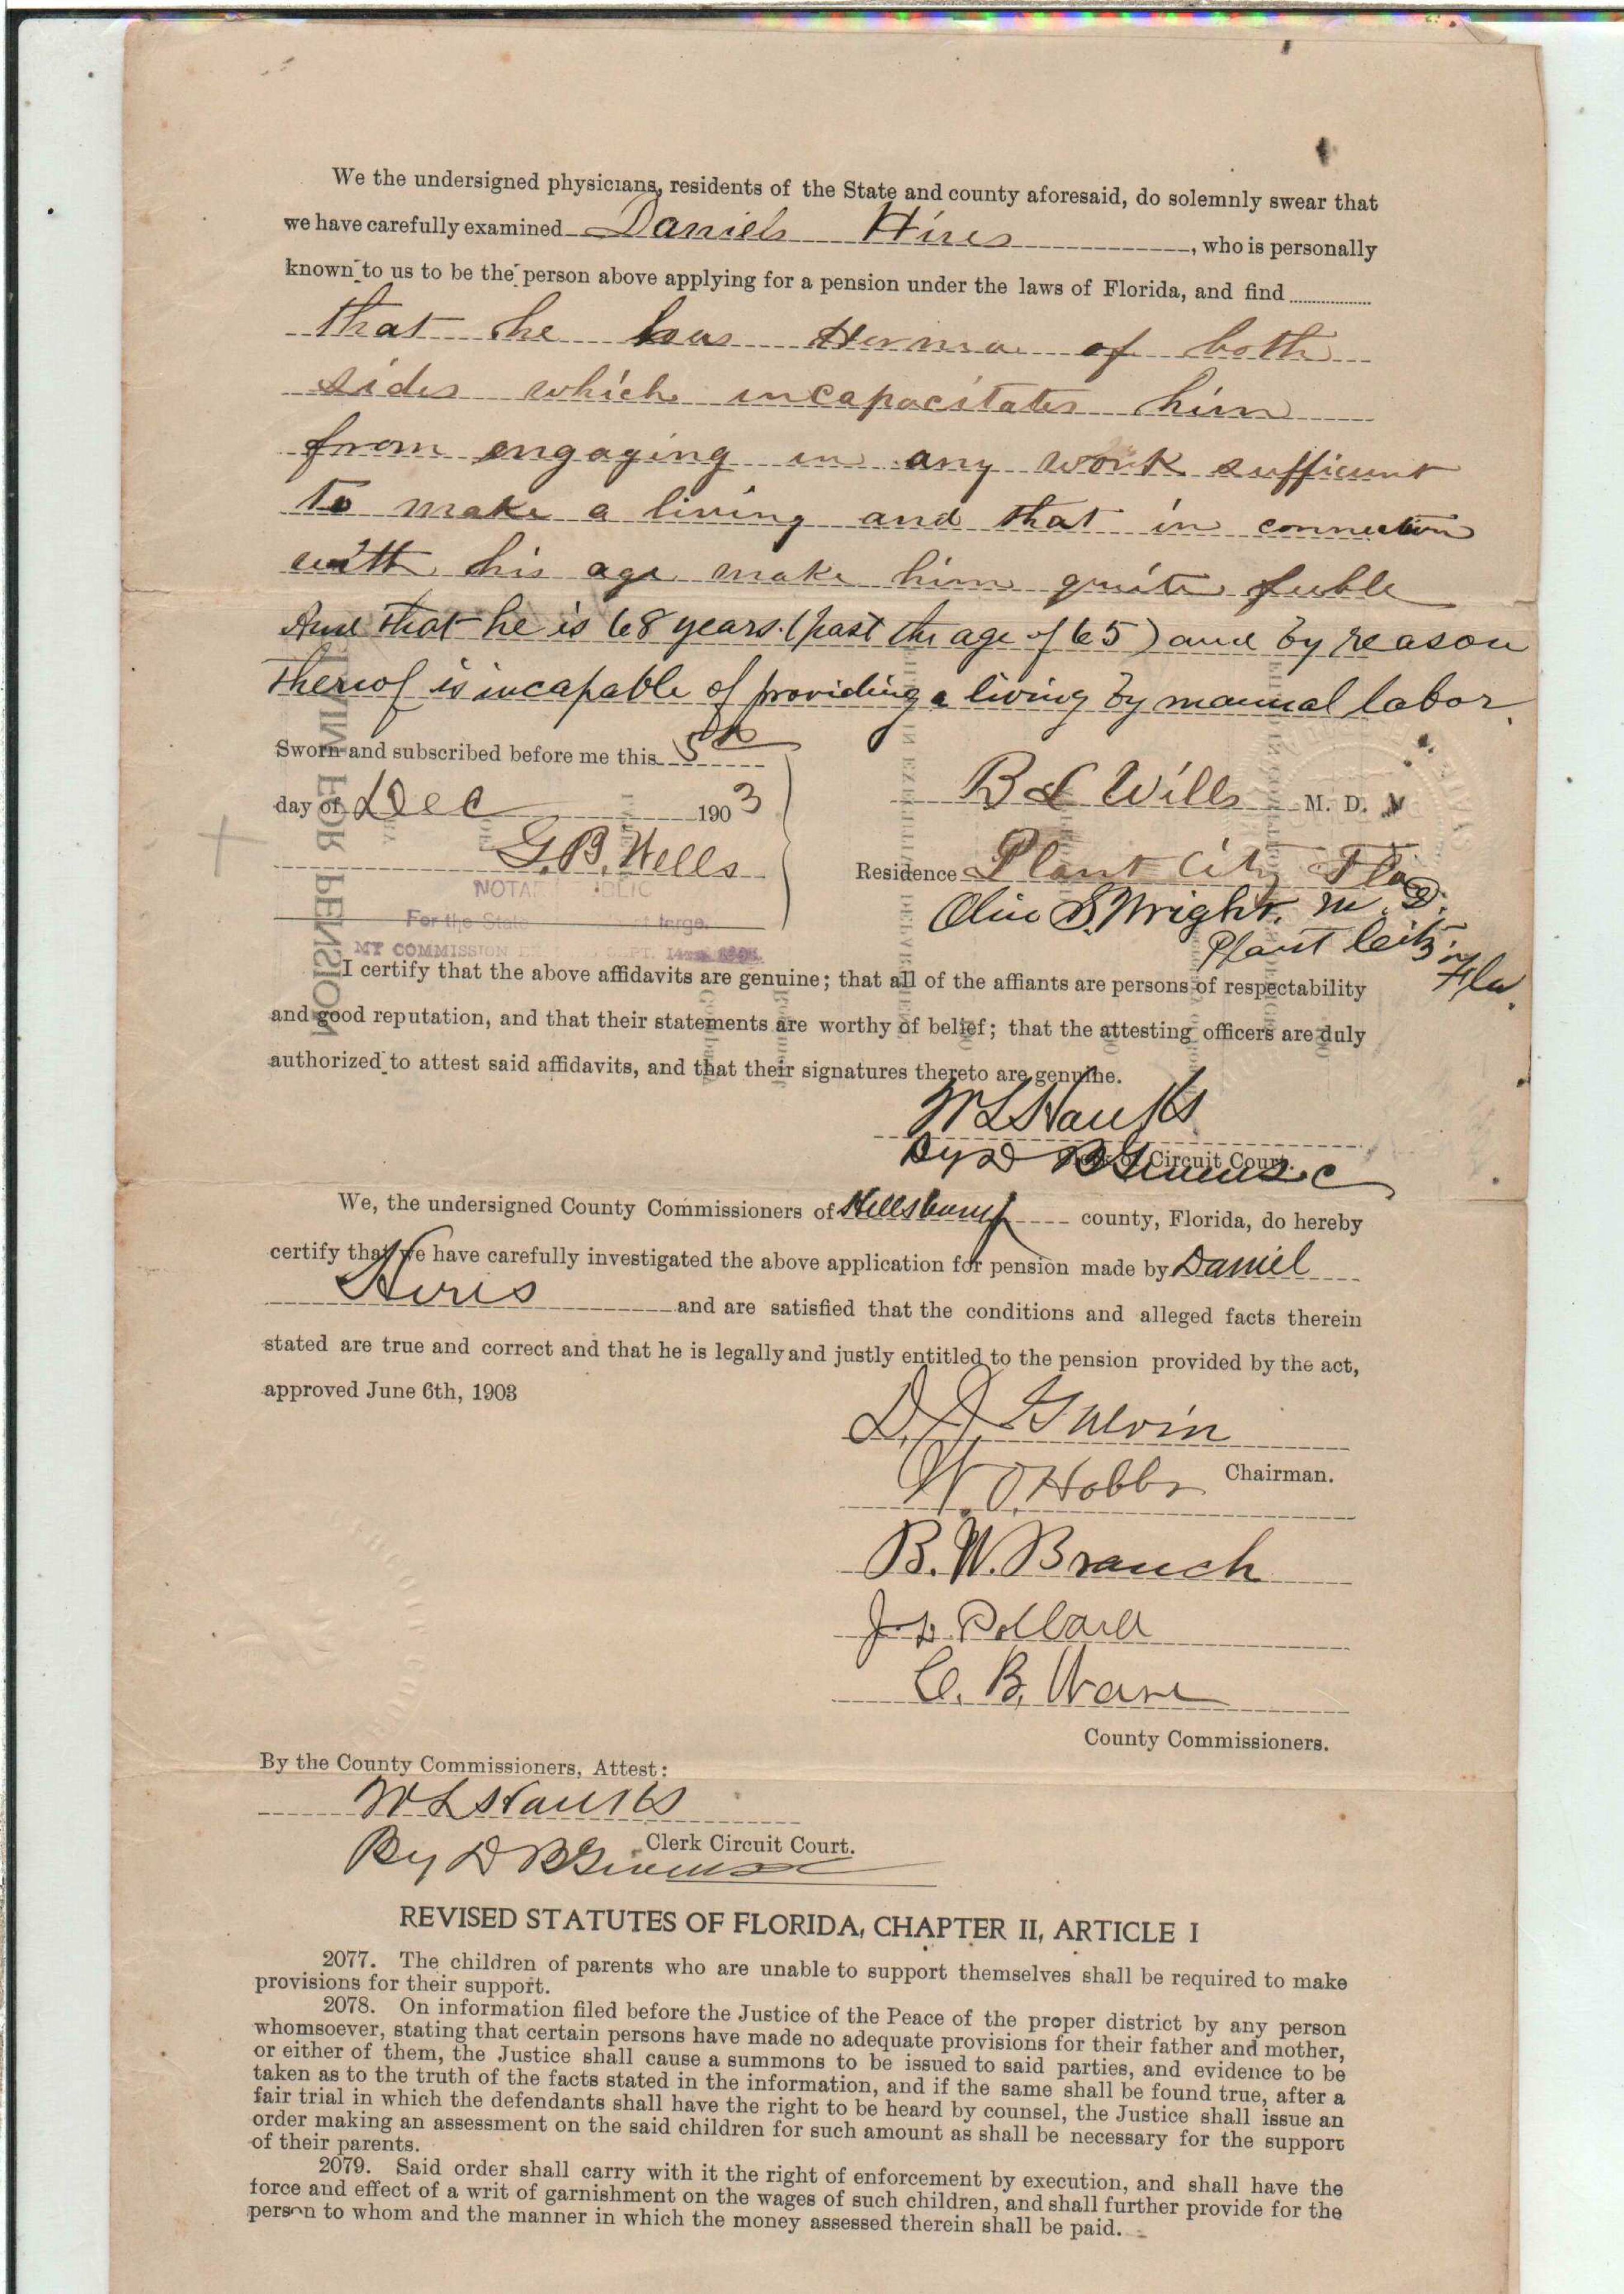 We the undersigned physicians, residents of the State and county aforesaid, do solemnly swear that
we have carefully examined Daniels Hires, who is personally
known to us to be the person above applying for a pension under the laws of Florida, and find
that he has Hernia of both
sides which incapacitates him
from engaging in any work sufficient
To make a living and that in connection
with his age make him quite feeble
And that he is 68 years (past the age of 65) and by reason
thereof is incapable of providing a living by manual labor.
Sworn and subscribed before me this 5th
day of Dec 1903
G. B. Wells
NOTA
For the State
MY COMMISSION
B L Wills M. D.
Residence Plant City Fla
Olin S. Wright. M. D.
Plant City, Fla.
I certify that the above affidavits are genuine; that all of the affiants are persons of respectability
and good reputation, and that their statements are worthy of belief; that the attesting officers are duly
authorized to attest said affidavits, and that their signatures thereto are genuine.
W L Hanks
By D B Circuit Court.
We, the undersigned County Commissioners of county, Florida, do hereby
certify that we have carefully investigated the above application for pension made by Daniel
Hires and are satisfied that the conditions and alleged facts therein
stated are true and correct and that he is legally and justly entitled to the pension provided by the act,
approved June 6th, 1903
Chairman.
W. J. Hobbs
B. W. Branch
Pollard
C. B. Ware
County Commissioners.
By the County Commissioners, Attest:
W L Hanks
Clerk Circuit Court.
By D B
REVISED STATUTES OF FLORIDA, CHAPTER II, ARTICLE I
2077. The children of parents who are unable to support themselves shall be required to make
provisions for their support.
2078. On information filed before the Justice of the Peace of the proper district by any person
whomsoever, stating that certain persons have made no adequate provisions for their father and mother,
or either of them, the Justice shall cause a summons to be issued to said parties, and evidence to be
taken as to the truth of the facts stated in the information, and if the same shall be found true, after a
fair trial in which the defendants shall have the right to be heard by counsel, the Justice shall issue an
order making an assessment on the said children for such amount as shall be necessary for the support
of their parents.
2079. Said order shall carry with it the right of enforcement by execution, and shall have the
force and effect of a writ of garnishment on the wages of such children, and shall further provide for the
person to whom and the manner in which the money assessed therein shall be paid.